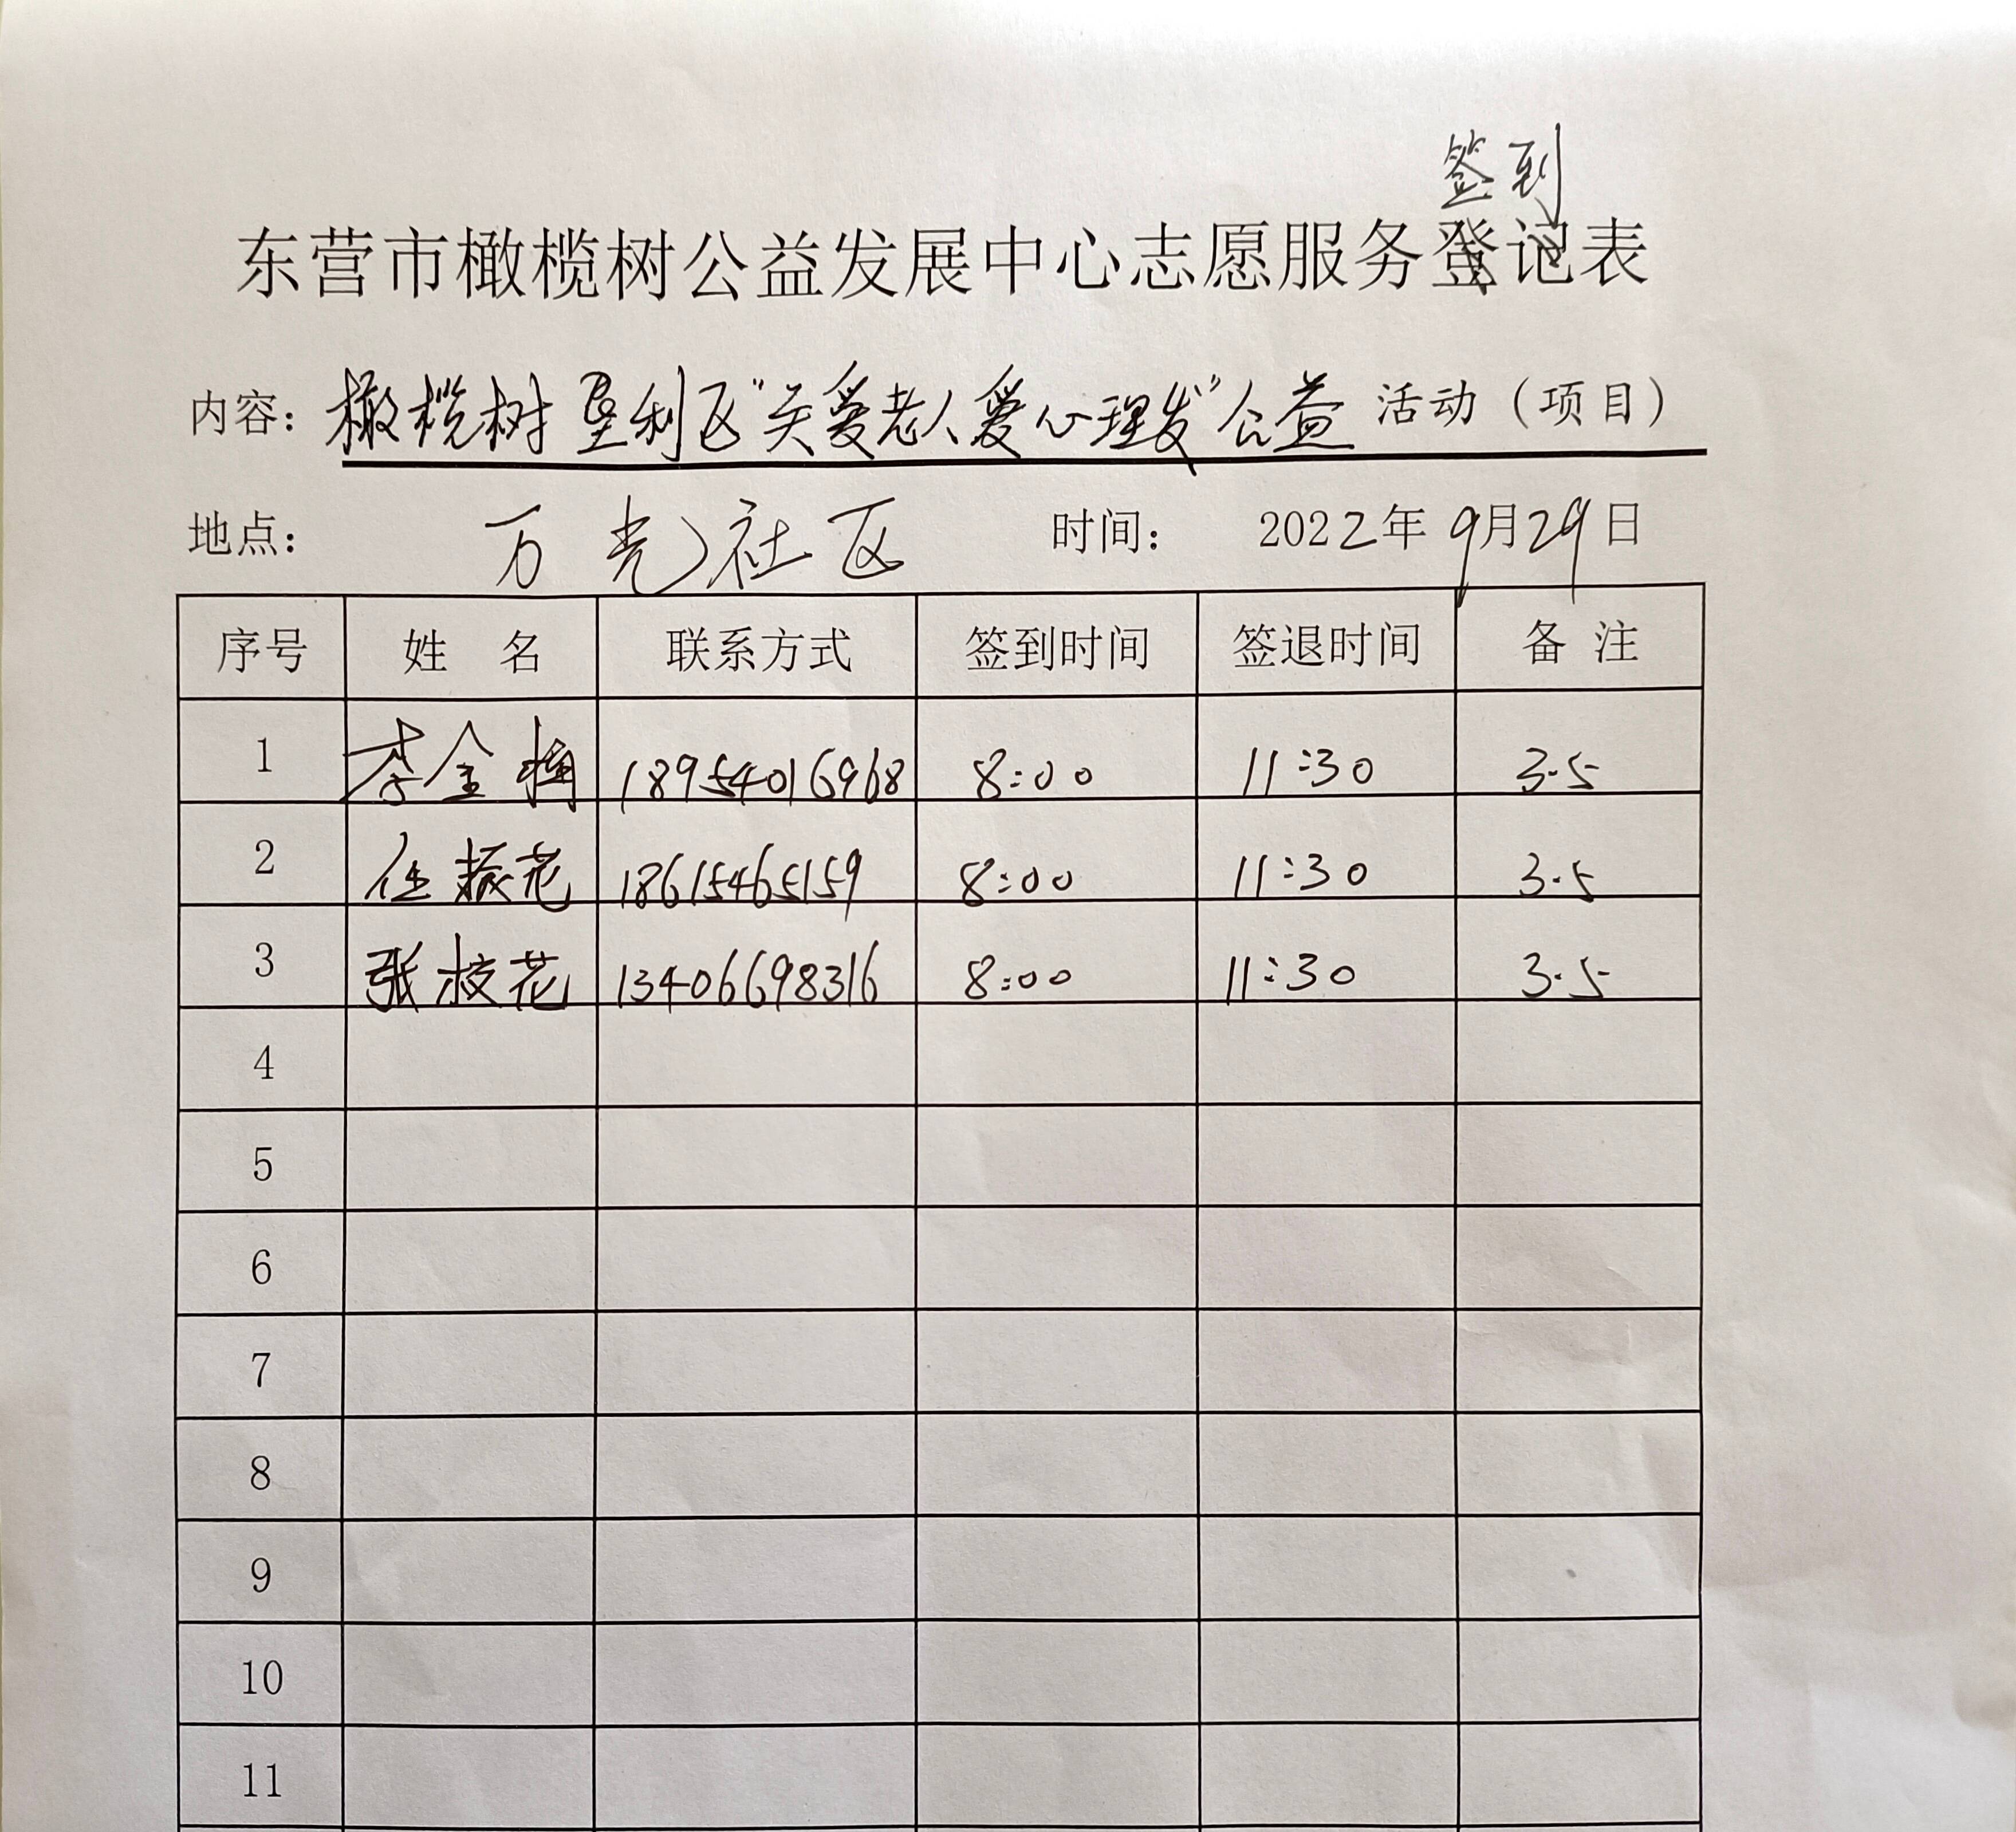 签到
东营市橄榄树公益发展中心志愿服务登记表
内容：橄榄树垦利区“关爱老人爱心理发”公益活动（项目）
地点： 万光社区 时间： 2022年9月29日
序号 姓 名 联系方式 签到时间 签退时间 备 注
1 李金梅 18954016968 8:00 11:30 3.5
2 任振花 18615465159 8:00 11:30 3.5
3 张枝花 13406698316 8:00 11:30 3.5
4
5
6
7
8
9
10
11